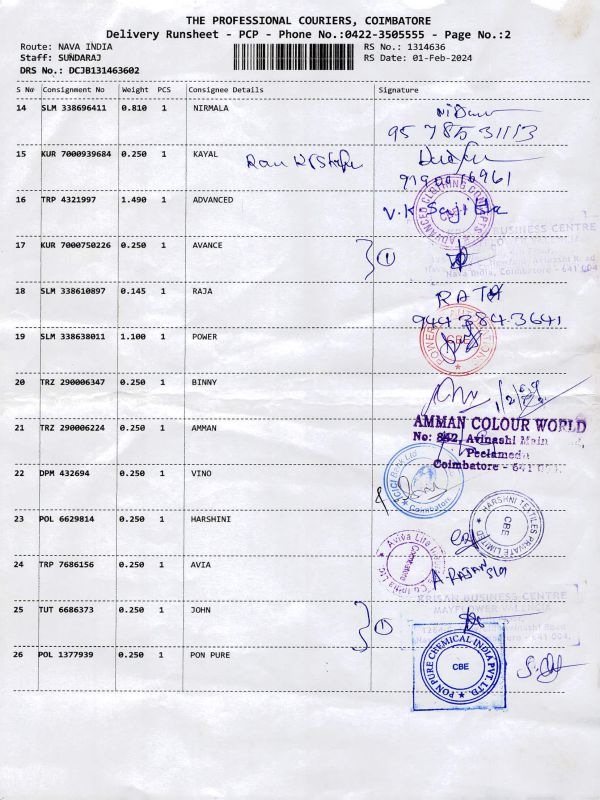 THE PROFESSIONAL COURIERS, COIMBATORE
Delivery Runsheet - PCP - Phone No.:0422-3505555 - Page No.:2
Route: NAVA INDIA
Staff: SUNDARAJ
DRS No.: DCJB131463602
RS No.: 1314636
RS Date: 01-Feb-2024
S No Consignment No Weight PCS Consignee Details Signature
14 SLM 338696411 0.810 1 NIRMALA
15 KUR 7000939684 0.250 1 KAYAL
16 TRP 4321997 1.490 1 ADVANCED
ADVANCED CLOTHING CONCEPTS
17 KUR 7000750226 0.250 1 AVANCE 1
BUSINESS CENTRE
Nava India, Coimbatore - 641 004
18 SLM 338610897 0.145 1 RAJA RAJA
944 384 3641
19 SLM 338638011 1.100 1 POWER
CBE
20 TRZ 290006347 0.250 1 BINNY
21 TRZ 290006224 0.250 1 AMMAN
AMMAN COLOUR WORLD
No: 842, Avinashi Main
Peelamedu
Coimbatore - 641
22 DPM 432694 0.250 1 VINO
ICICI Bank Ltd
Coimbatore
23 POL 6629814 0.250 1 HARSHINI
HARSHNI TEXTILES PRIVATE LIMITED
CBE
24 TRP 7686156 0.250 1 AVIA
Aviva Life
Coimbatore
A. RAJAN
25 TUT 6686373 0.250 1 JOHN 1
KRISAN BUSINESS CENTRE
MAYFLOWER VALENCIA
26 POL 1377939 0.250 1 PON PURE
PON PURE CHEMICAL INDIA PVT. LTD.
CBE